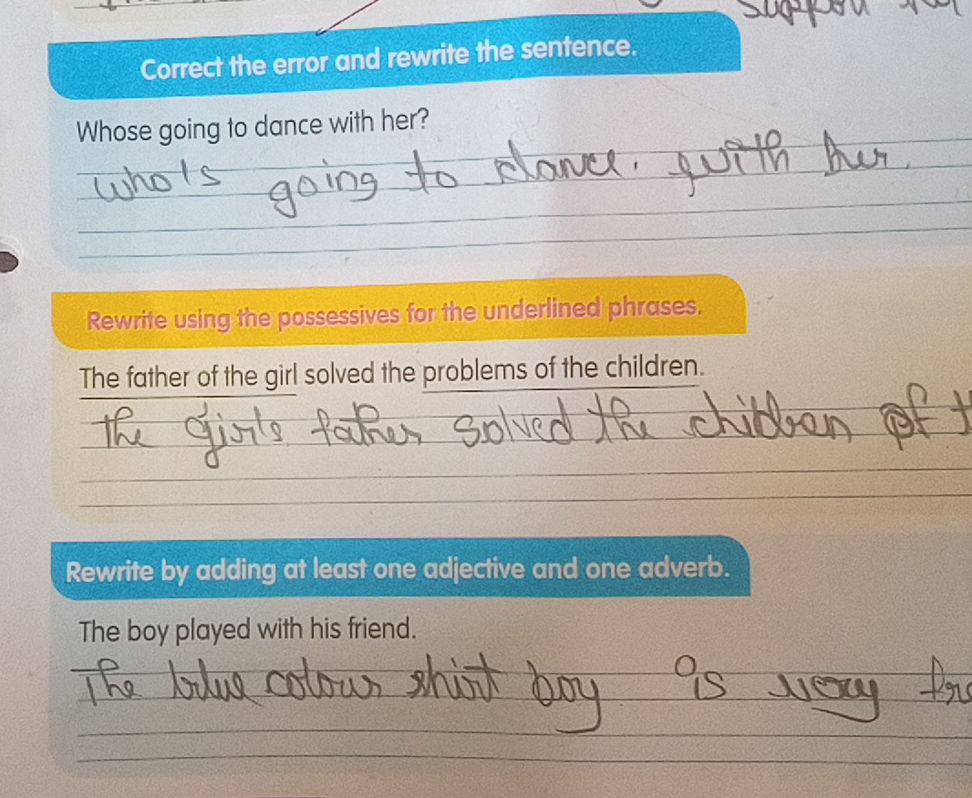 support her
Correct the error and rewrite the sentence.
Whose going to dance with her?
who's going to dance. with her.
Rewrite using the possessives for the underlined phrases.
The father of the girl solved the problems of the children.
The girl's father solved the children of
Rewrite by adding at least one adjective and one adverb.
The boy played with his friend.
The blue colour shirt boy is very